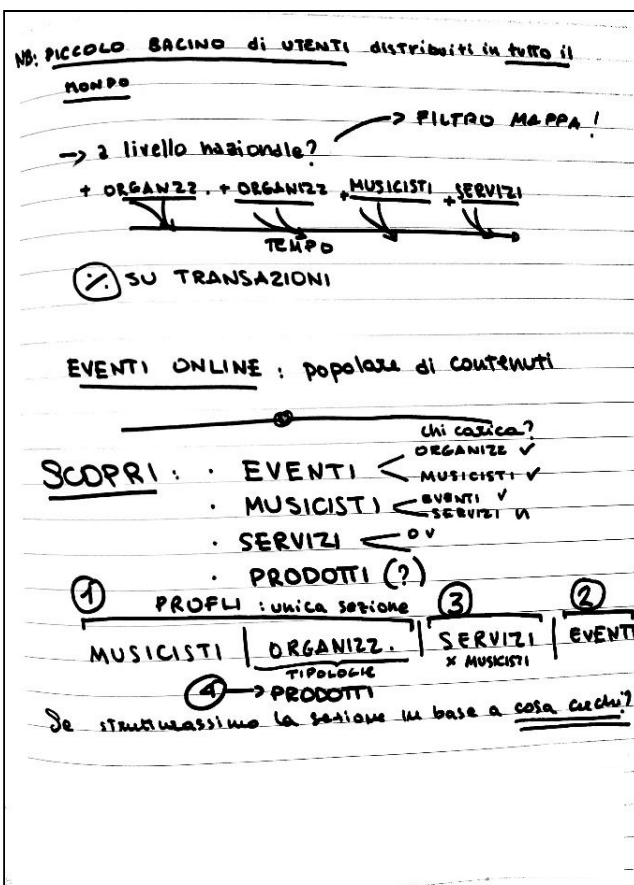 NB: PICCOLO BACINO di UTENTI distribuiti in tutto il
MONDO
-> FILTRO MAPPA!
-> a livello nazionale?
+ ORGANIZZ. + ORGANIZZ + MUSICISTI + SERVIZI
TEMPO
% SU TRANSAZIONI
EVENTI ONLINE : popolare di contenuti
chi carica?
SCOPRI : · EVENTI < ORGANIZZ ✓
MUSICISTI ✓
· MUSICISTI < EVENTI ✓
SERVIZI
· SERVIZI <
· PRODOTTI (?)
1 3 2
PROFLI : unica sezione
MUSICISTI | ORGANIZZ. | SERVIZI | EVENTI
TIPOLOGIE x MUSICISTI
4 -> PRODOTTI
Se strutturassimo la sezione in base a cosa cerchi?